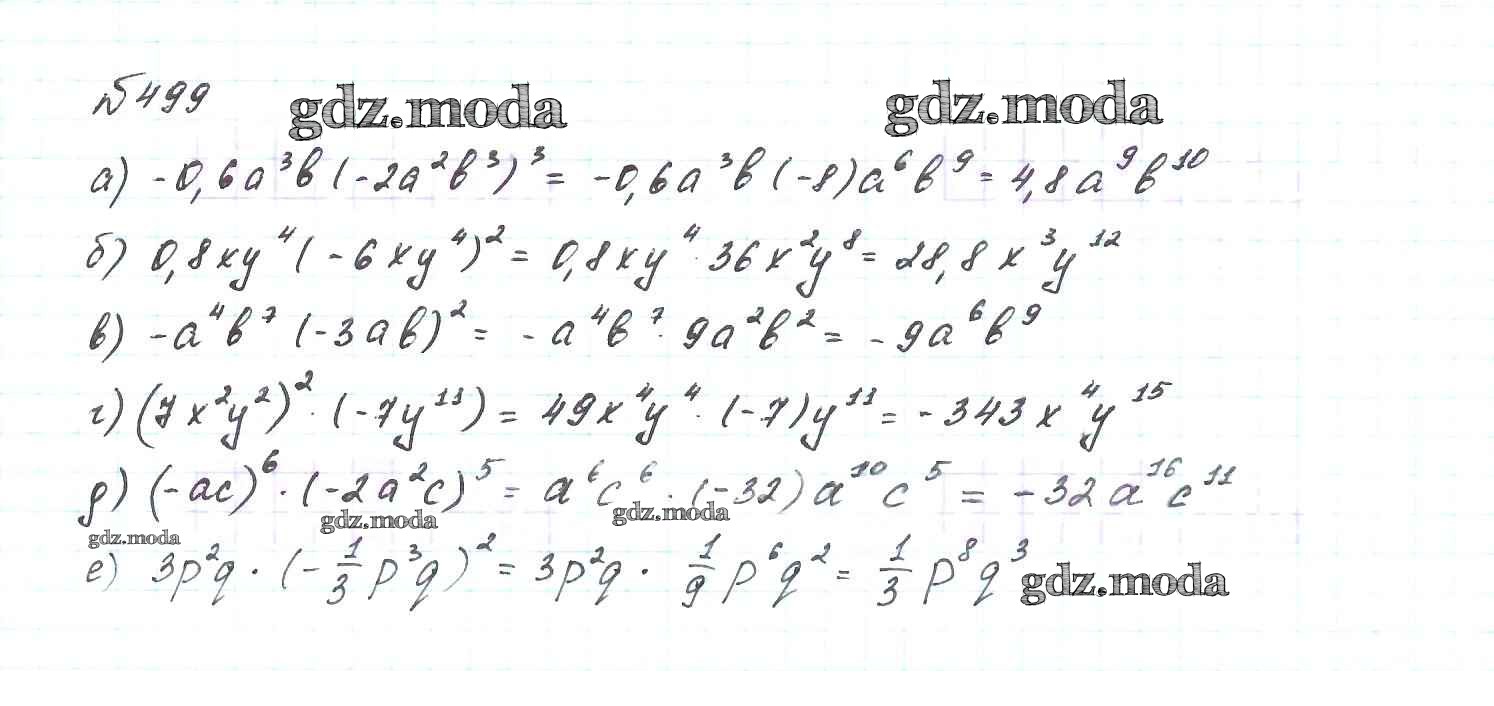 №499 gdz.moda gdz.moda
а) -0,6a³b(-2a²b³)³ = -0,6a³b(-8)a⁶b⁹ = 4,8a⁹b¹⁰
б) 0,8xy⁴(-6xy⁴)² = 0,8xy⁴·36x²y⁸ = 28,8x³y¹²
в) -a⁴b⁷(-3ab)² = -a⁴b⁷·9a²b² = -9a⁶b⁹
г) (7x²y²)²·(-7y¹¹) = 49x⁴y⁴·(-7)y¹¹ = -343x⁴y¹⁵
д) (-ac)⁶·(-2a²c)⁵ = a⁶c⁶·(-32)a¹⁰c⁵ = -32a¹⁶c¹¹
gdz.moda gdz.moda gdz.moda
е) 3p²q·(-1/3p³q)² = 3p²q·1/9p⁶q² = 1/3p⁸q³ gdz.moda